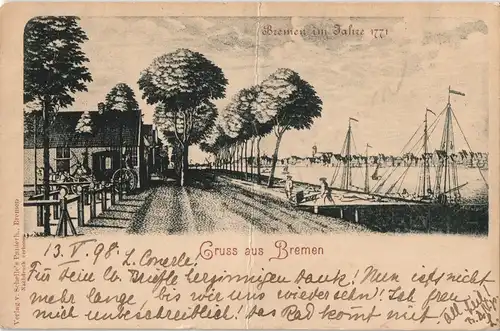 Bremen im Jahre 1771
Verlag v. Schelle's Papierh., Bremen
Nachdruck verboten.
Gruss aus Bremen
13. V. 98. L.
Für Deine lb. Briefe herzinnigen Dank! Nun ists nicht
mehr lange, bis wir uns wiedersehn! Ich freu
mich unbeschreiblich! Das Rad kommt mit